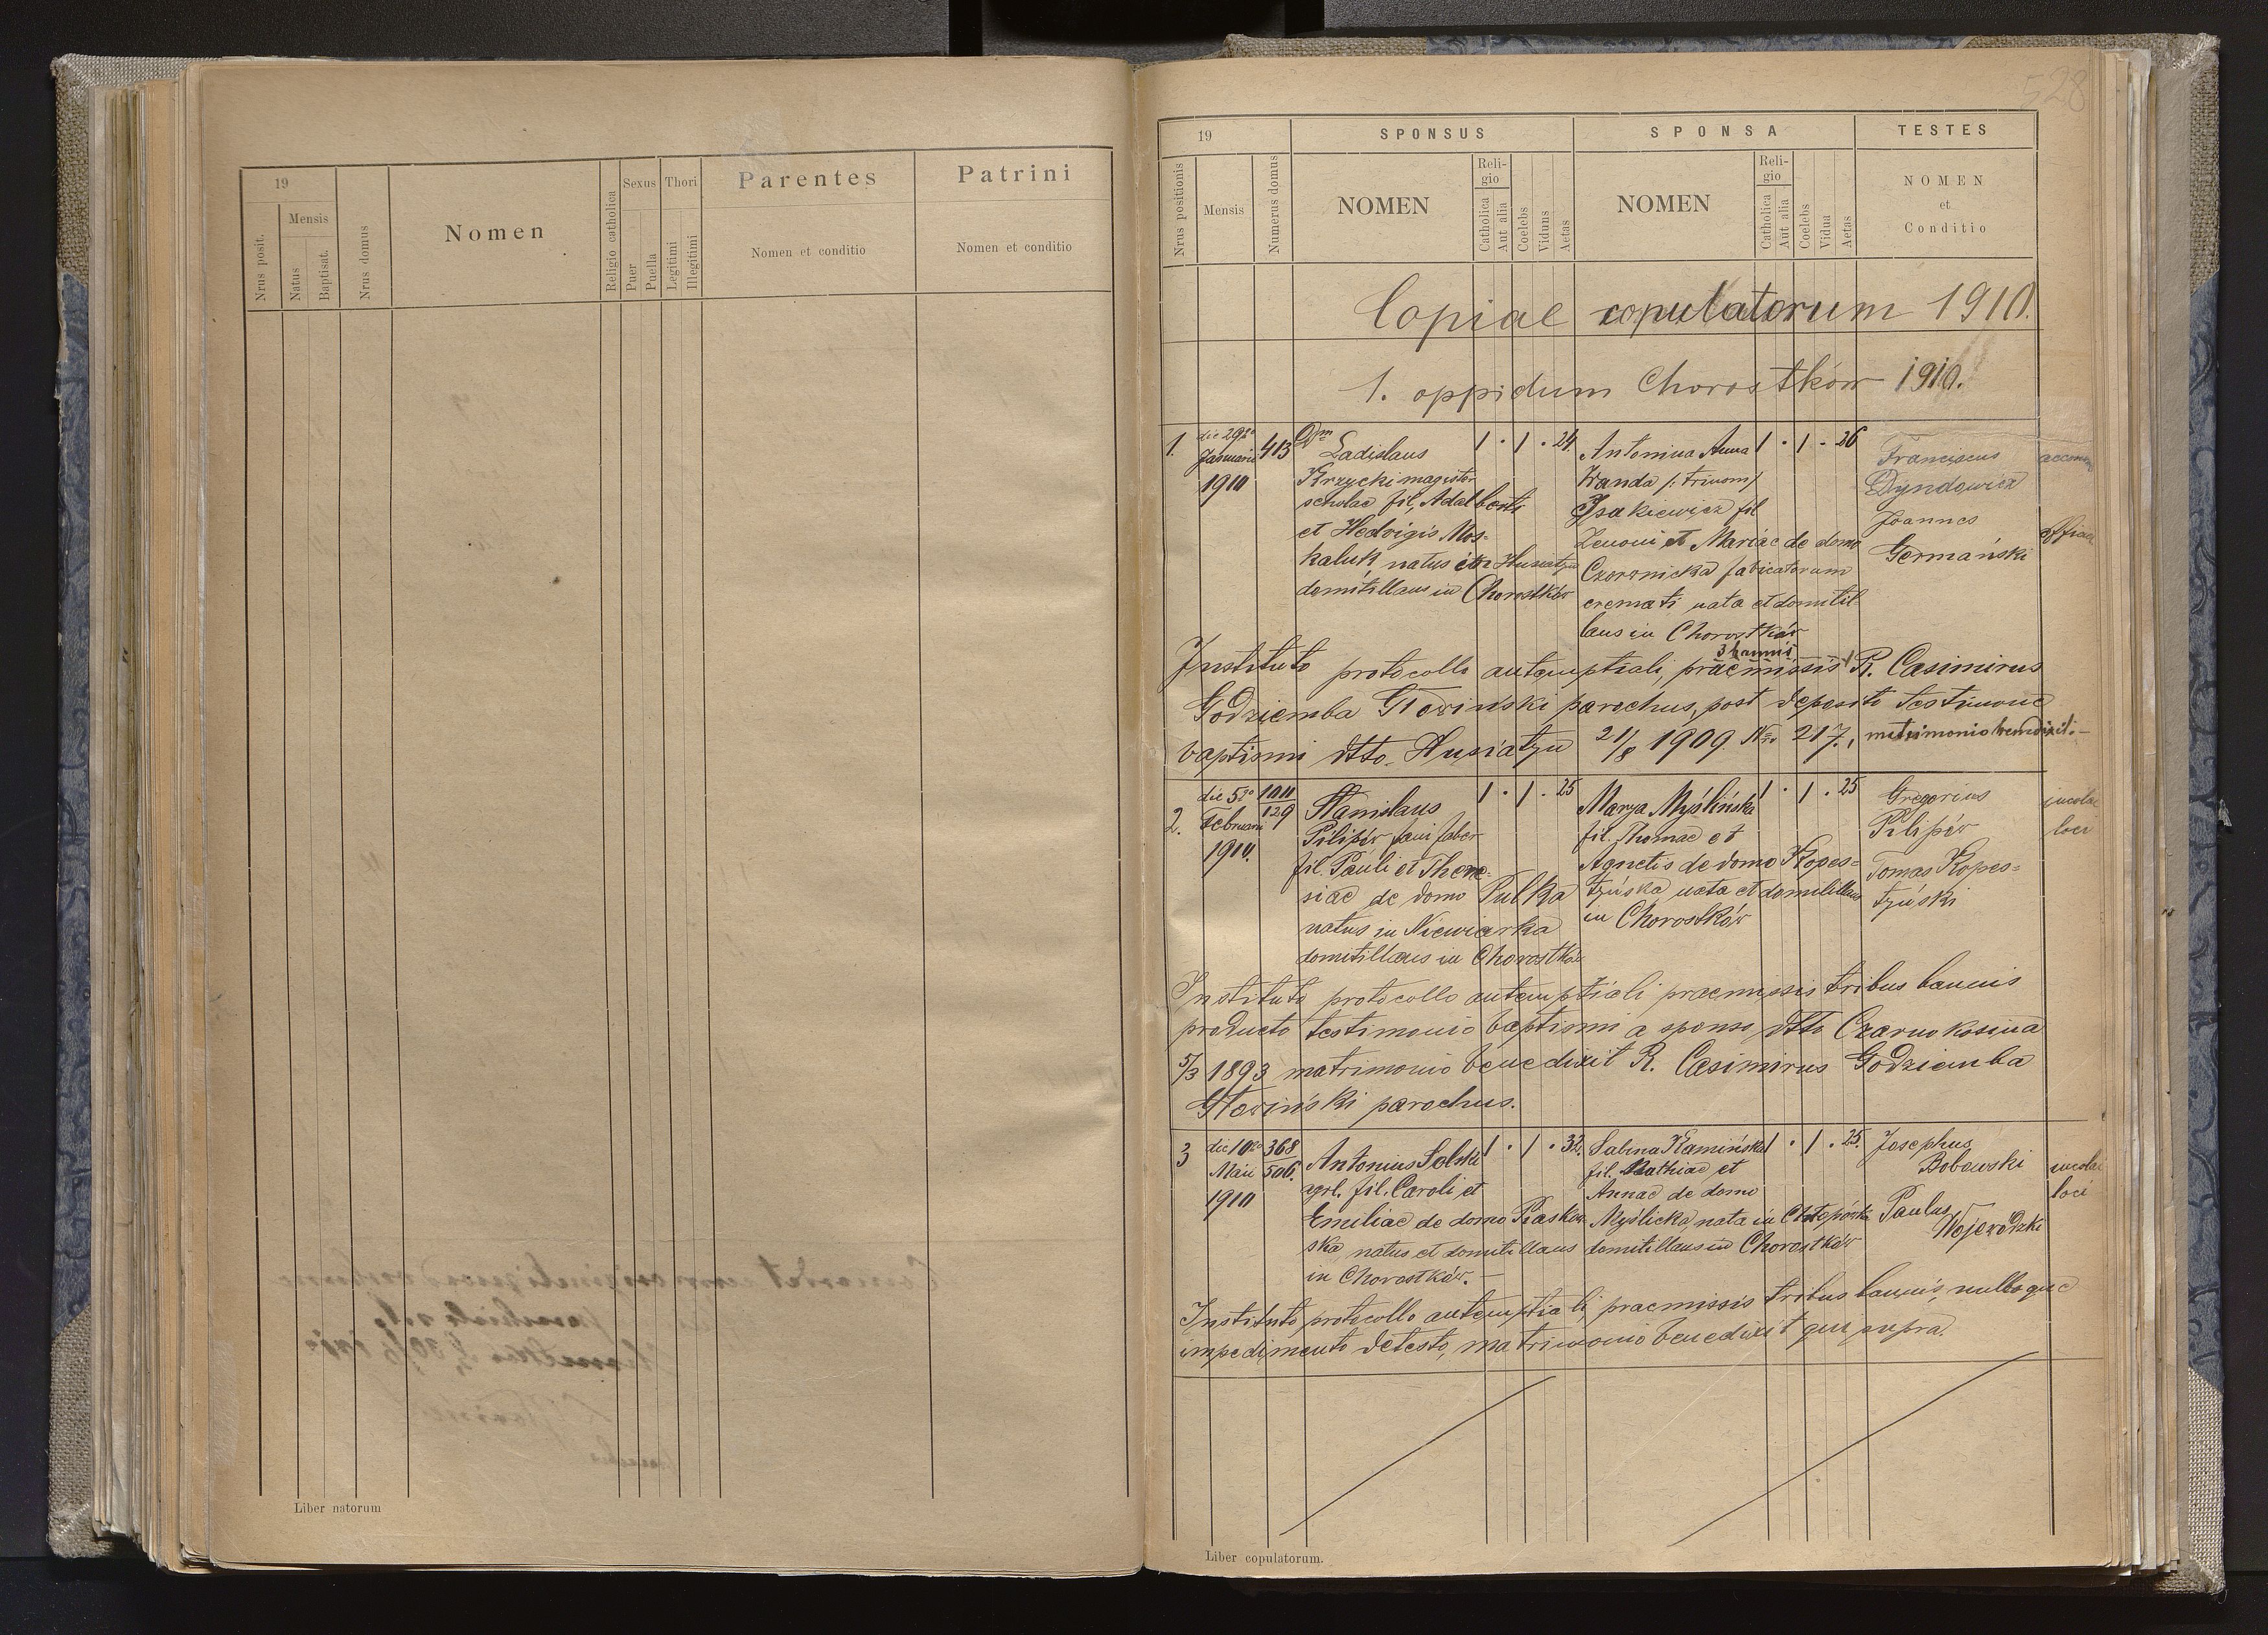 19
Nrus posit.
Mensis
Natus
Baptisat.
Nrus domus
Nomen
Religio catholica
Sexus
Puer
Puella
Thori
Legitimi
Illegitimi
Parentes
Nomen et conditio
Patrini
Nomen et conditio
Liber natorum
528
19
SPONSUS
SPONSA
TESTES
Nrus positionis
Mensis
Numerus domus
NOMEN
Reli-
gio
Catholica
Aut alia
Coelebs
Viduus
Aetas
NOMEN
Reli-
gio
Catholica
Aut alia
Coelebs
Vidua
Aetas
NOMEN
et
Conditio
Copiae copulatorum 1910.
1. oppidum Chorostków 1910.
1.
die 29
Januarii
1910
413
Ladislaus
Krzycki magister
scholae fil. Adalberti
et Hedvigis Mos-
kaluk, natus in Husiatyn
domitillans in Chorostków
1 . 1 . 24.
Antonina Anna
Wanda /: trinom/
Isakiewicz fil
Zenoni et Mariae de domo
Czorownicka fabicatorum
cremati nata et domitil-
lans in Chorostków
1 . 1 - 26
Franciscus
Dyndowicz
Joannes
Germański
Instituto protocollo antenuptiali, praemissis 3 bannis R. Casimirus
Godziemba Głowiński parochus, post deposito testimone
baptismi dtto. Husiatyn 21/8 1909. Nro 217., matrimonio benedixit.-
2.
die 5to
Februarii
1910.
100
129
Stanislaus
Pilipów faber
fil. Pauli et There-
siae de domo Pulka
natus in Niewiarka
domitillans in Chorostków
1 . 1 . 25
Marya Myślińska
fil. Thomae et
Agnetis de domo Kopes-
tyńska nata et domitillans
in Chorostków
1 . 1 . 25
Gregorius
Pilipów
Tomas Kopes-
tyński
incolae
loci
Instituto protocollo antenuptiali praemissis tribus bannis
producto testimonio baptismi a sponso, dtto Czarnokosina
5/3 1893 matrimonio benedixit R. Casimirus Godziemba
Głowiński parochus.
3
die 10
Maii
1910
368
506.
Antonius Solski
agrl. fil. Caroli et
Emiliae de domo Piaskow-
ska natus et domitillans
in Chorostków.-
1 . 1 . 32.
Sabina Kamińska
fil. Mathiae et
Annae de domo
Myślicka, nata in Chłopówka
domitillans in Chorostków
1 . 1 . 25.
Josephus
Bobowski
Paulus
Wojewódzki
incolae
loci
Instituto protocollo antenuptiali, praemissis tribus bannis, nulloque
impedimento detesto, matrimonio benedixit qui supra.
Liber copulatorum.